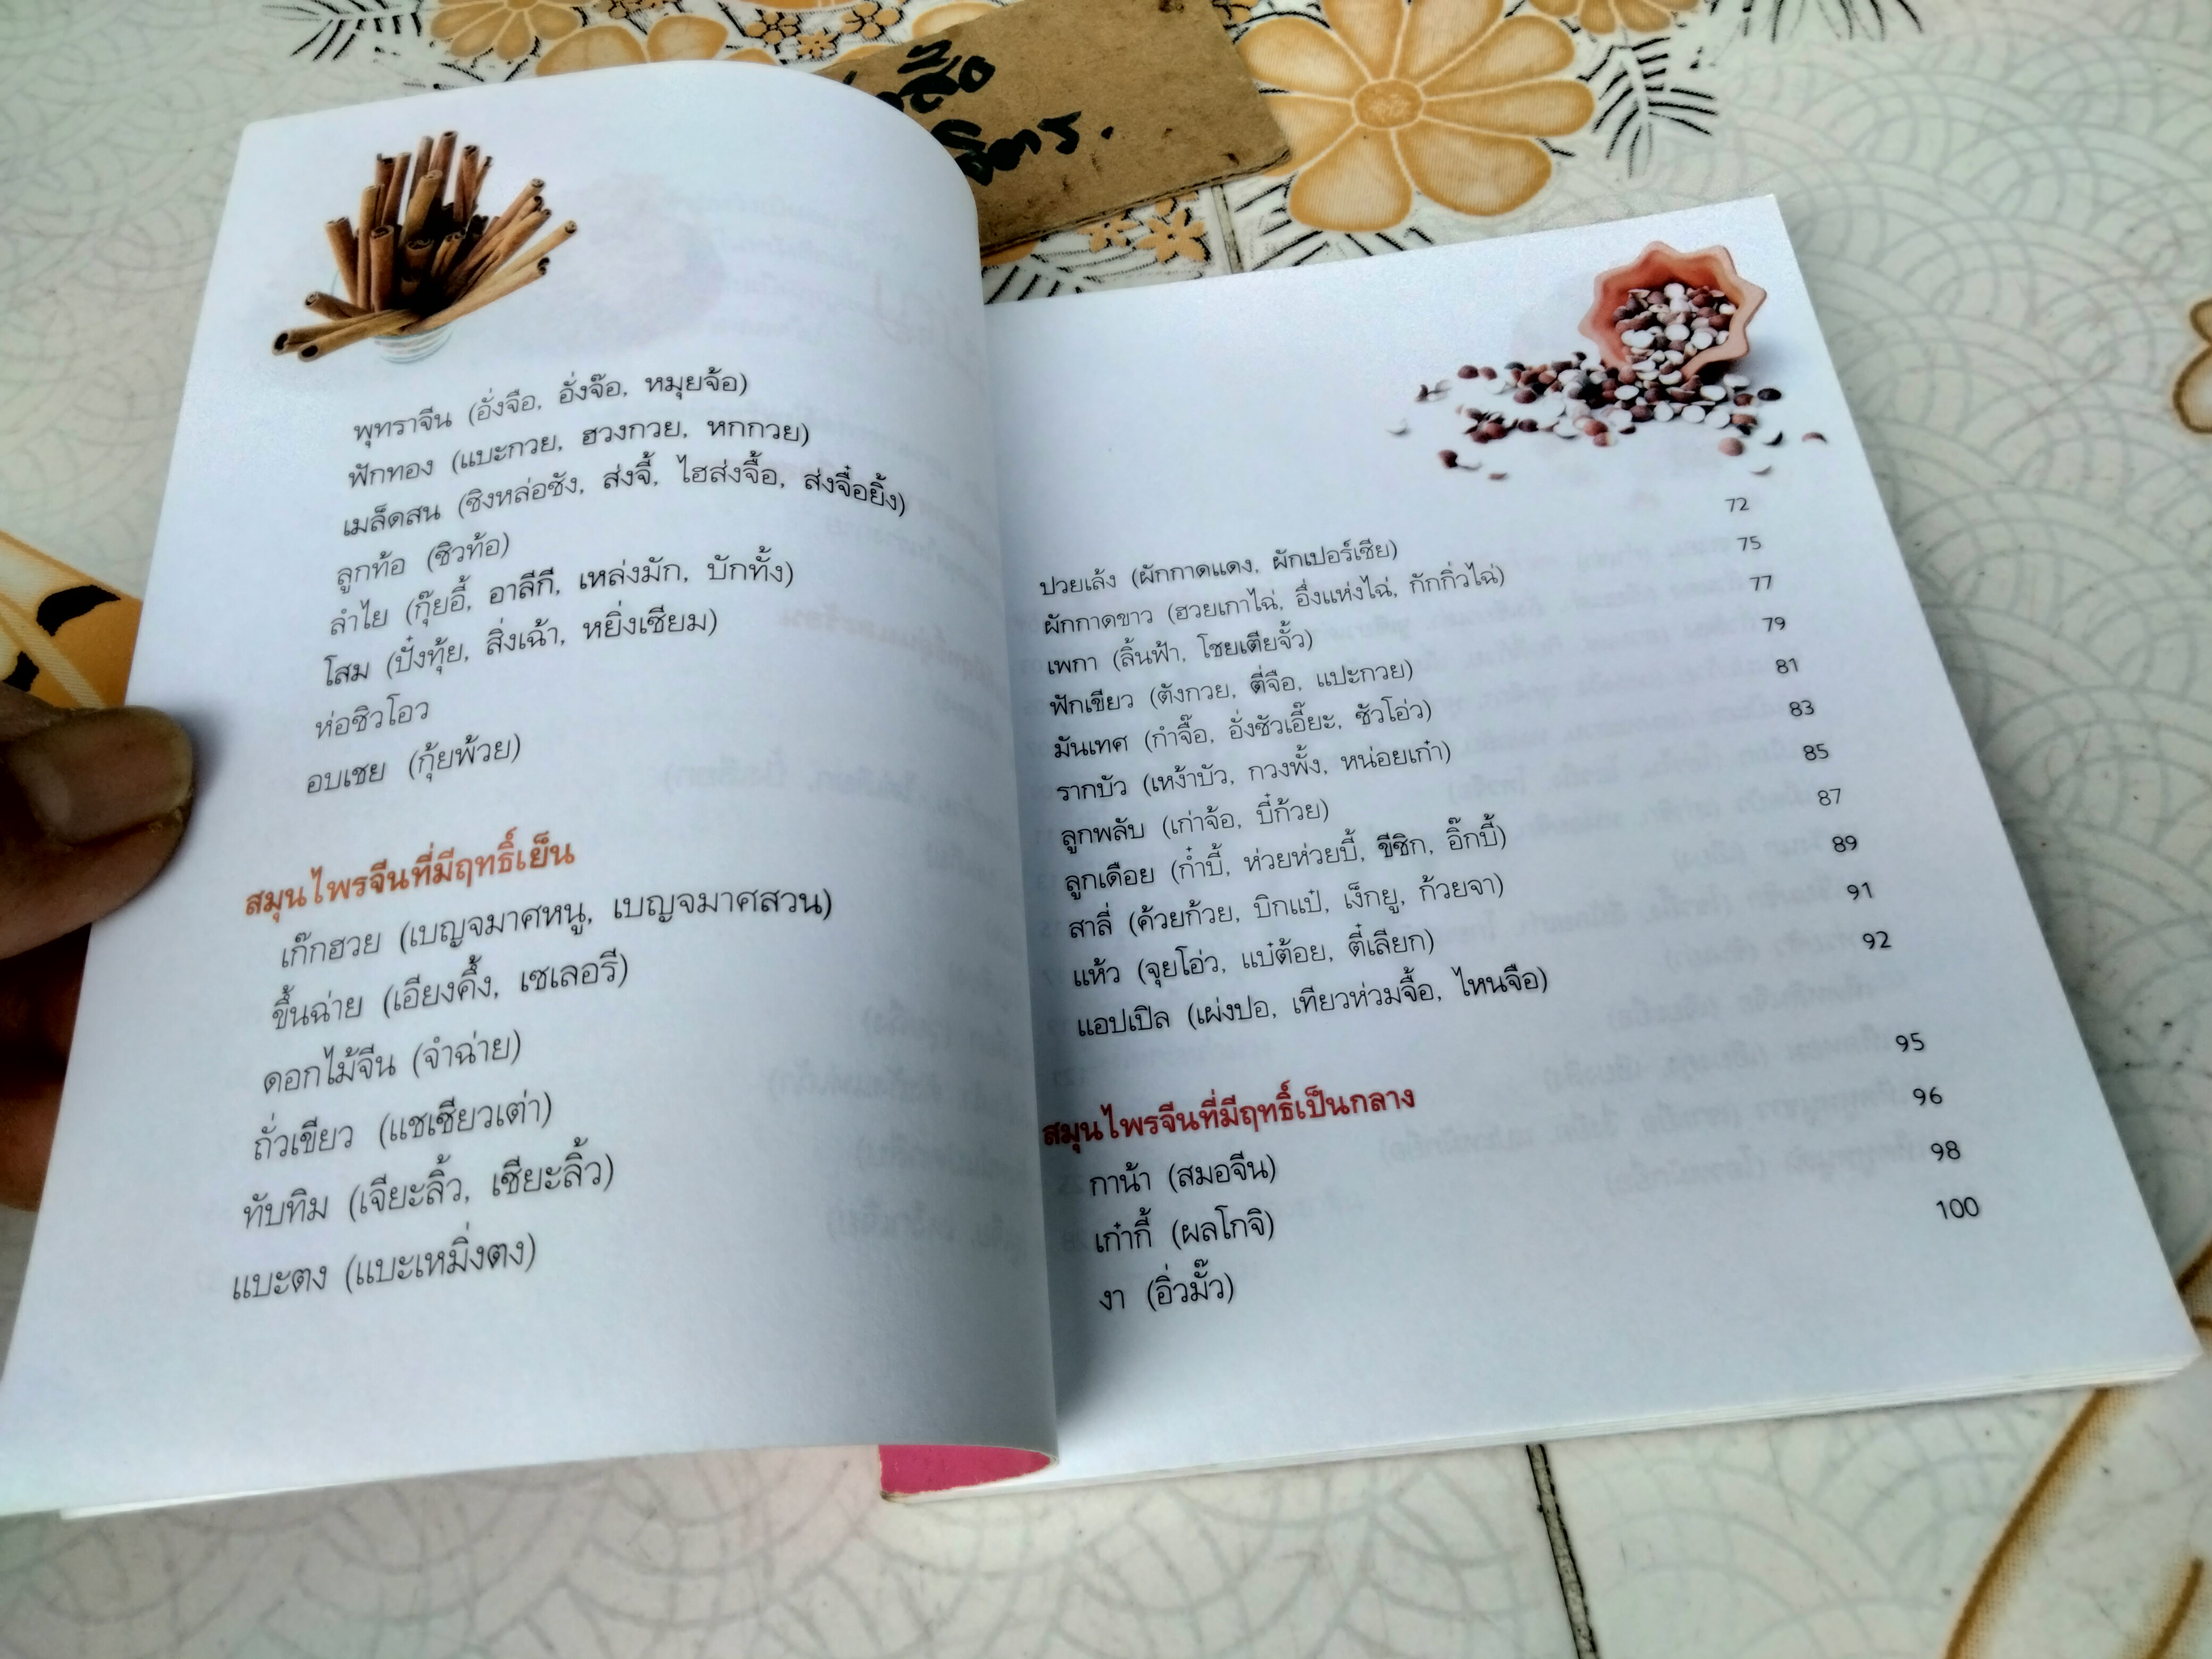 สือ
จิตร.
พุทราจีน (อั่งจือ, อั่งจ๊อ, หมุยจ้อ)
ฟักทอง (แบะกวย, ฮวงกวย, หกกวย)
เมล็ดสน (ซิงหล่อซัง, ส่งจี้, ไฮส่งจื้อ, ส่งจื่อยิ้ง)
ลูกท้อ (ซิวท้อ)
ลำไย (กุ๊ยอี้, อาลีกี, เหล่งมัก, บักทั้ง)
โสม (ปั่งทุ้ย, สิ่งเฉ้า, หยิ่งเซียม)
ห่อซิวโอว
อบเชย (กุ้ยพ้วย)
สมุนไพรจีนที่มีฤทธิ์เย็น
เก๊กฮวย (เบญจมาศหนู, เบญจมาศสวน)
ขึ้นฉ่าย (เอียงคึ้ง, เซเลอรี)
ดอกไม้จีน (จำฉ่าย)
ถั่วเขียว (แชเซียวเต่า)
ทับทิม (เจียะลิ้ว, เซียะลิ้ว)
แบะตง (แบะเหมิ่งตง)
72
ปวยเล้ง (ผักกาดแดง, ผักเปอร์เซีย) 75
ผักกาดขาว (ฮวยเกาไฉ่, อึ่งแห่งไฉ่, กักกิ่วไฉ่) 77
เพกา (ลิ้นฟ้า, โชยเตียจั้ว) 79
ฟักเขียว (ตังกวย, ตี่จือ, แปะกวย) 81
มันเทศ (กำจื๊อ, อั่งซัวเอี๊ยะ, ซัวโอ่ว) 83
รากบัว (เหง้าบัว, กวงพั้ง, หน่อยเก๋า) 85
ลูกพลับ (เก่าจ้อ, บี๋ก้วย) 87
ลูกเดือย (ก๋ำบี้, ห่วยห่วยบี้, ขีซิก, อิ๊กบี้) 89
สาลี่ (ค้วยก้วย, บิกแป๋, เง็กยู, ก้วยจา) 91
แห้ว (จุยโอ่ว, แบ๋ต้อย, ตี๋เลียก) 92
แอปเปิล (เผ่งปอ, เทียวห่วมจื้อ, ไหนจือ)
95
สมุนไพรจีนที่มีฤทธิ์เป็นกลาง 96
กาน้า (สมอจีน) 98
เก๋ากี้ (ผลโกจิ) 100
งา (อิ่วมั๊ว)